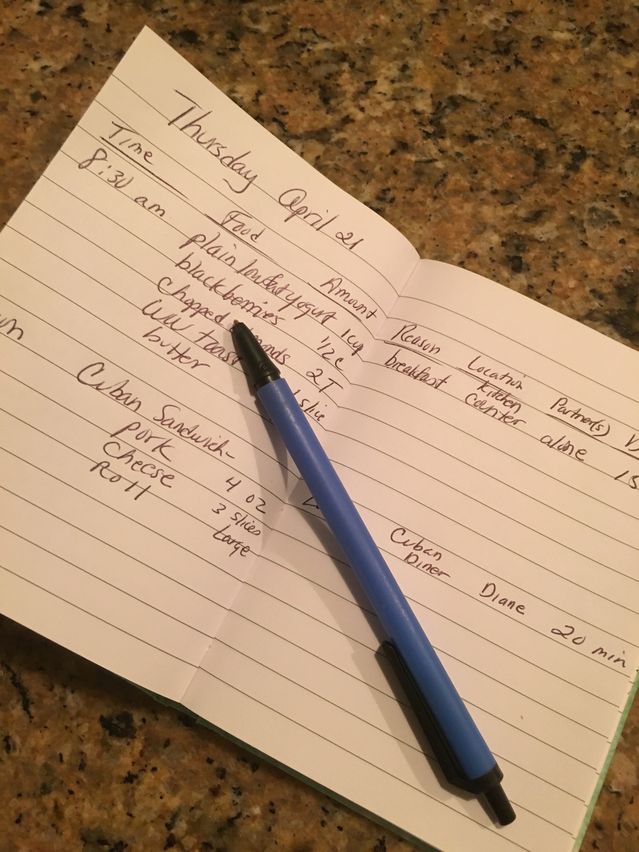 Thursday April 21
Time Food Amount Reason Location Partner(s)
8:30 am plain lowfat yogurt 1 cup breakfast Kitchen counter alone
blackberries 1/2 c
Chopped 2T
WW toast slice
butter
Cuban Sandwich- Cuban Diner Diane 20 min
pork 4 oz
cheese 3 slices
Roll Large